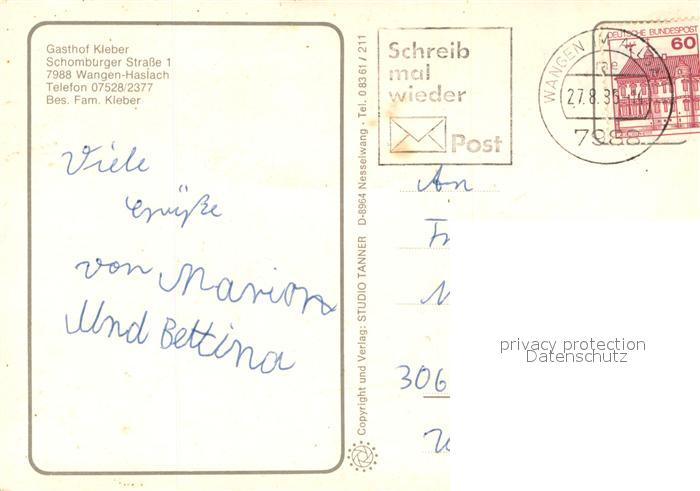 Gasthof Kleber
Schomburger Straße 1
7988 Wangen-Haslach
Telefon 07528/2377
Bes. Fam. Kleber
Viele
Grüße
von Marion
Und Bettina
Copyright und Verlag: STUDIO TANNER D-8964 Nesselwang · Tel. 08361 / 211
Schreib
mal
wieder
Post
WANGEN IM ALLG
27.8.85
7988
DEUTSCHE BUNDESPOST
60
An
306
privacy protection
Datenschutz